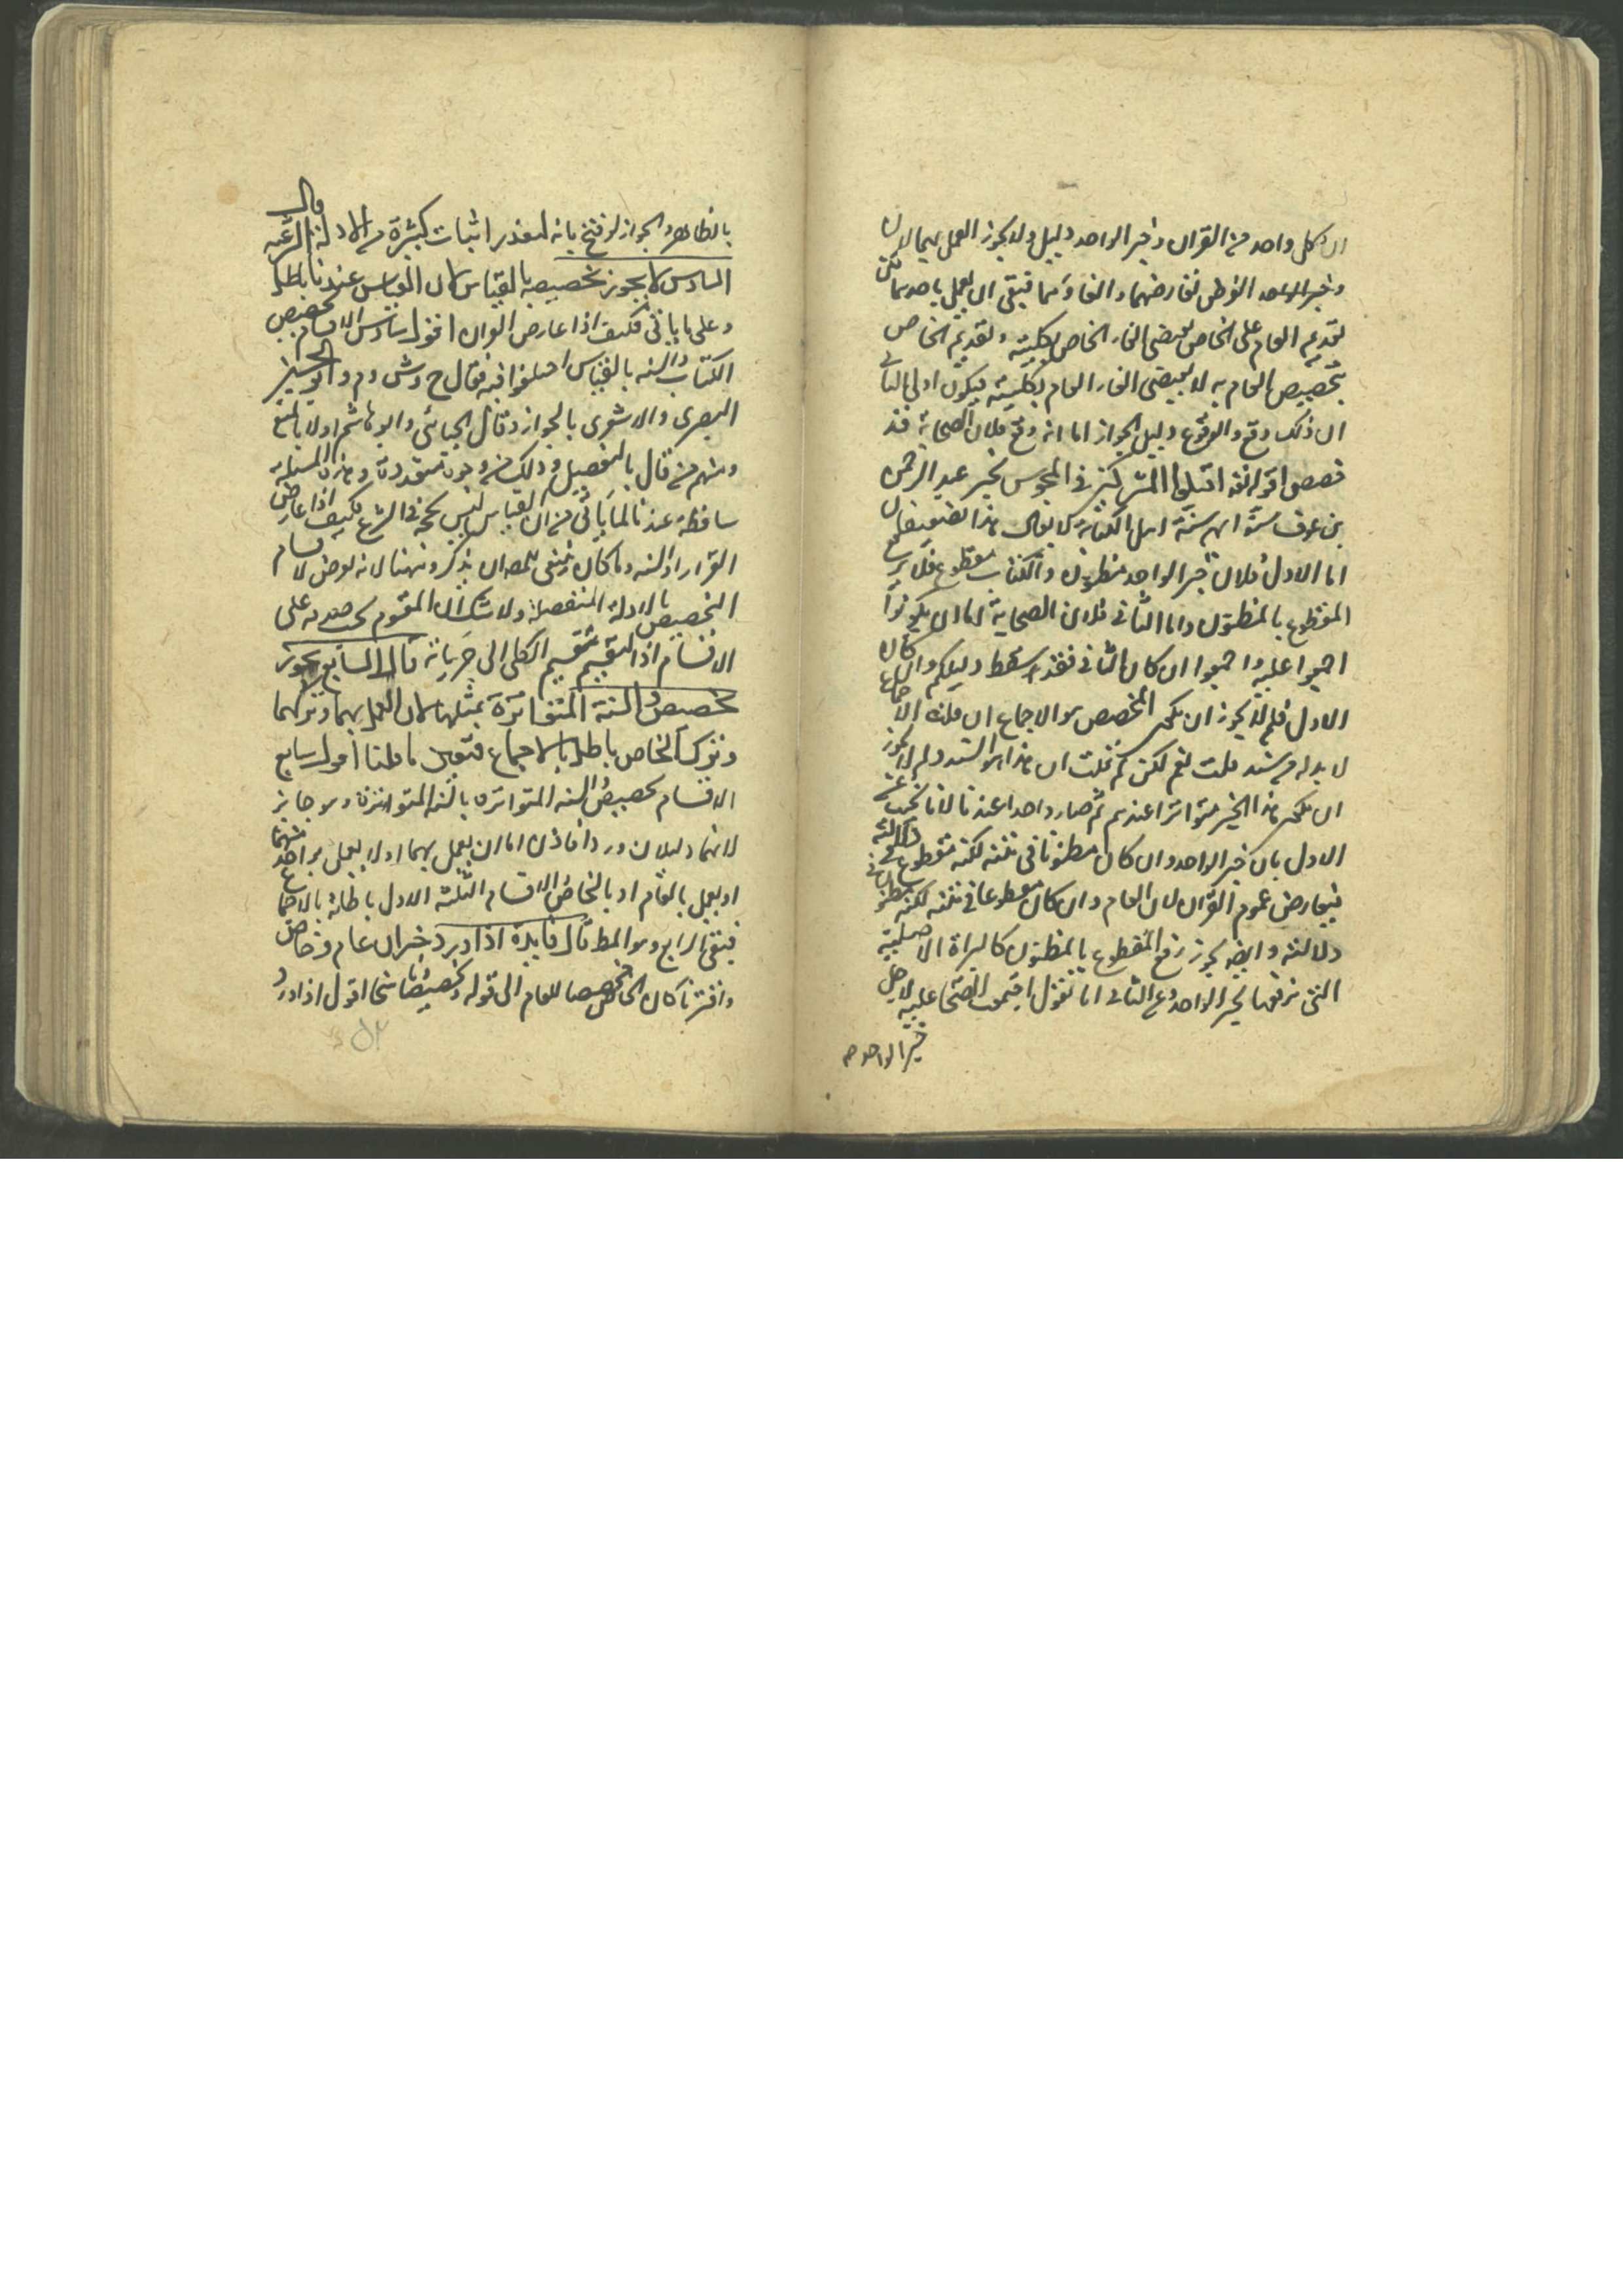 ان كل واحد من القران وخبر الواحد دليل ولا يجوز العمل بهما لان
وخبر الواحد الفرض تعارضهما والغاؤهما فبقى ان يعمل باحدهما لكن
تقديم العام على الخاص يقتضى الغاء الخاص بكليته وتقديم الخاص
بتخصيص العام به لا يقتضى الغاء العام بكليته فيكون اولى الثانى
ان ذلك وقع والوقوع دليل الجواز اما انه وقع فلان الصحابة قد
خصصوا قوله تعه اقتلوا المشركين فى المجوس بخبر عبد الرحمن
بن عوف سنوا بهم سنة اهل الكتاب لا يقال هذا ضعيفان
اما الاول فلان خبر الواحد مظنون والكتاب مقطوع فلا يرفع
المقطوع بالمظنون واما الثانى فلان الصحابة اما ان يكونوا
اجمعوا عليه او اجمعوا ان كان الثانى فقد سقط دليلكم وان كان
الاول فلم لا يجوز ان يكون المخصص هو الاجماع فان قلت الاجماع
لا بد له من سند قلت نعم لكن لم قلت ان هذا هو السند ولم لا يجوز
ان يكون هذا الخبر متواترا عندهم ثم صار واحدا عندنا لانا نجيب عن
الاول بان خبر الواحد وان كان مظنونا فى متنه لكنه مقطوع فى دلالته
فيعارض عموم القران لان العام وان كان مقطوعا فى متنه لكنه مظنون فى
دلالته وايضا يجوز رفع المقطوع بالمظنون كالبراة الاصلية
التى نرفعها بخبر الواحد وعن الثانى انا نقول اجتمعت الصحا عليه لاجل
خبر الواحد صه
بالظاهر والجواز لو فتح بابه لتعذر اثبات كثيرة من الادلة الشرعية قال
السادس لا يجوز تخصيصه بالقياس لان القياس عندنا باطل
وعلى ما ياتى فكيف اذا عارض القران اقول سادس الاقسام تخصيص
الكتاب والسنه بالقياس اختلفوا فيه فقال ح وش وم وابو الحسين
البصرى والاشعرى بالجواز وقال الجبائى وابو هاشم اولا بالمنع
ومنهم من قال بالتفصيل وذلك من وجوه متعددة وهذه المسئلة
ساقطة عندنا لما ياتى من ان القياس ليس بحجة فى الشرع فكيف اذا عارض
القران او السنه وما كان ينبغى للمص ان يذكره هنا لانه لعرض لاقسام
التخصيص بالادلة المنفصلة ولا شك ان المقسوم يجب صدقه على
الاقسام اذ التقسيم تقسيم الكلى الى جزياته قال السابع يجوز
تخصيص السنة المتواترة بمثلها لان العمل بهما وتركهما
وترك الخاص باطل بالاجماع فتعين ما قلنا اقول سابع
الاقسام تخصيص السنه المتواتره بالسنه المتواترة وهو جايز
لانهما دليلان وردا فاذن اما ان يعمل بهما او لا يعمل بواحد منهما
او يعمل بالعام او بالخاص الاقسام الثلثة الاول باطلة بالاجماع
فبقى الرابع وهو المط قال فايدة اذا ورد خبران عام وخاص
واقترنا كان الخاص مخصصا للعام الى قوله وتخصيصا شحا اقول اذا ورد